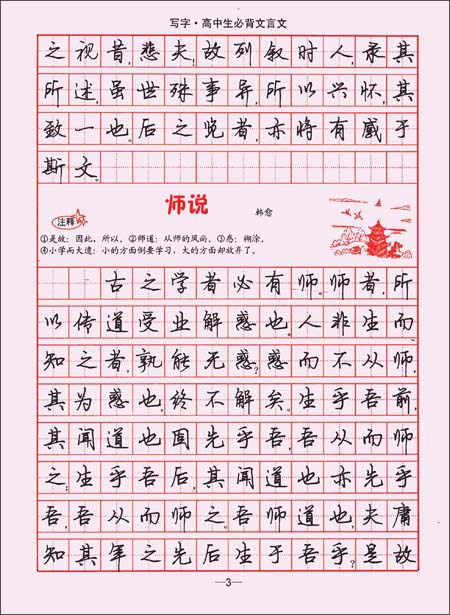 写字·高中生必背文言文
之视昔，悲夫！故列叙时人，录其
所述，虽世殊事异，所以兴怀，其
致一也。后之览者，亦将有感于
斯文。
师说 韩愈
注释
①是故：因此，所以。②师道：从师的风尚。③惑：糊涂。
④小学而大遗：小的方面倒要学习，大的方面却放弃了。
古之学者必有师。师者，所
以传道受业解惑也。人非生而
知之者，孰能无惑？惑而不从师，
其为惑也，终不解矣。生乎吾前，
其闻道也固先乎吾，吾从而师
之；生乎吾后，其闻道也亦先乎
吾，吾从而师之。吾师道也，夫庸
知其年之先后生于吾乎？是故
—3—